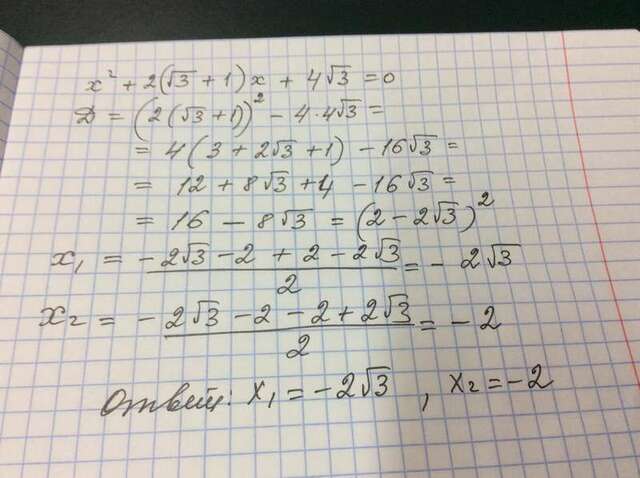 x² + 2(√3 + 1)x + 4√3 = 0
D = (2(√3 + 1))² − 4·4√3 =
= 4(3 + 2√3 + 1) − 16√3 =
= 12 + 8√3 + 4 − 16√3 =
= 16 − 8√3 = (2 − 2√3)²
x₁ = (−2√3 − 2 + 2 − 2√3)/2 = −2√3
x₂ = (−2√3 − 2 − 2 + 2√3)/2 = −2
Ответ: x₁ = −2√3, x₂ = −2